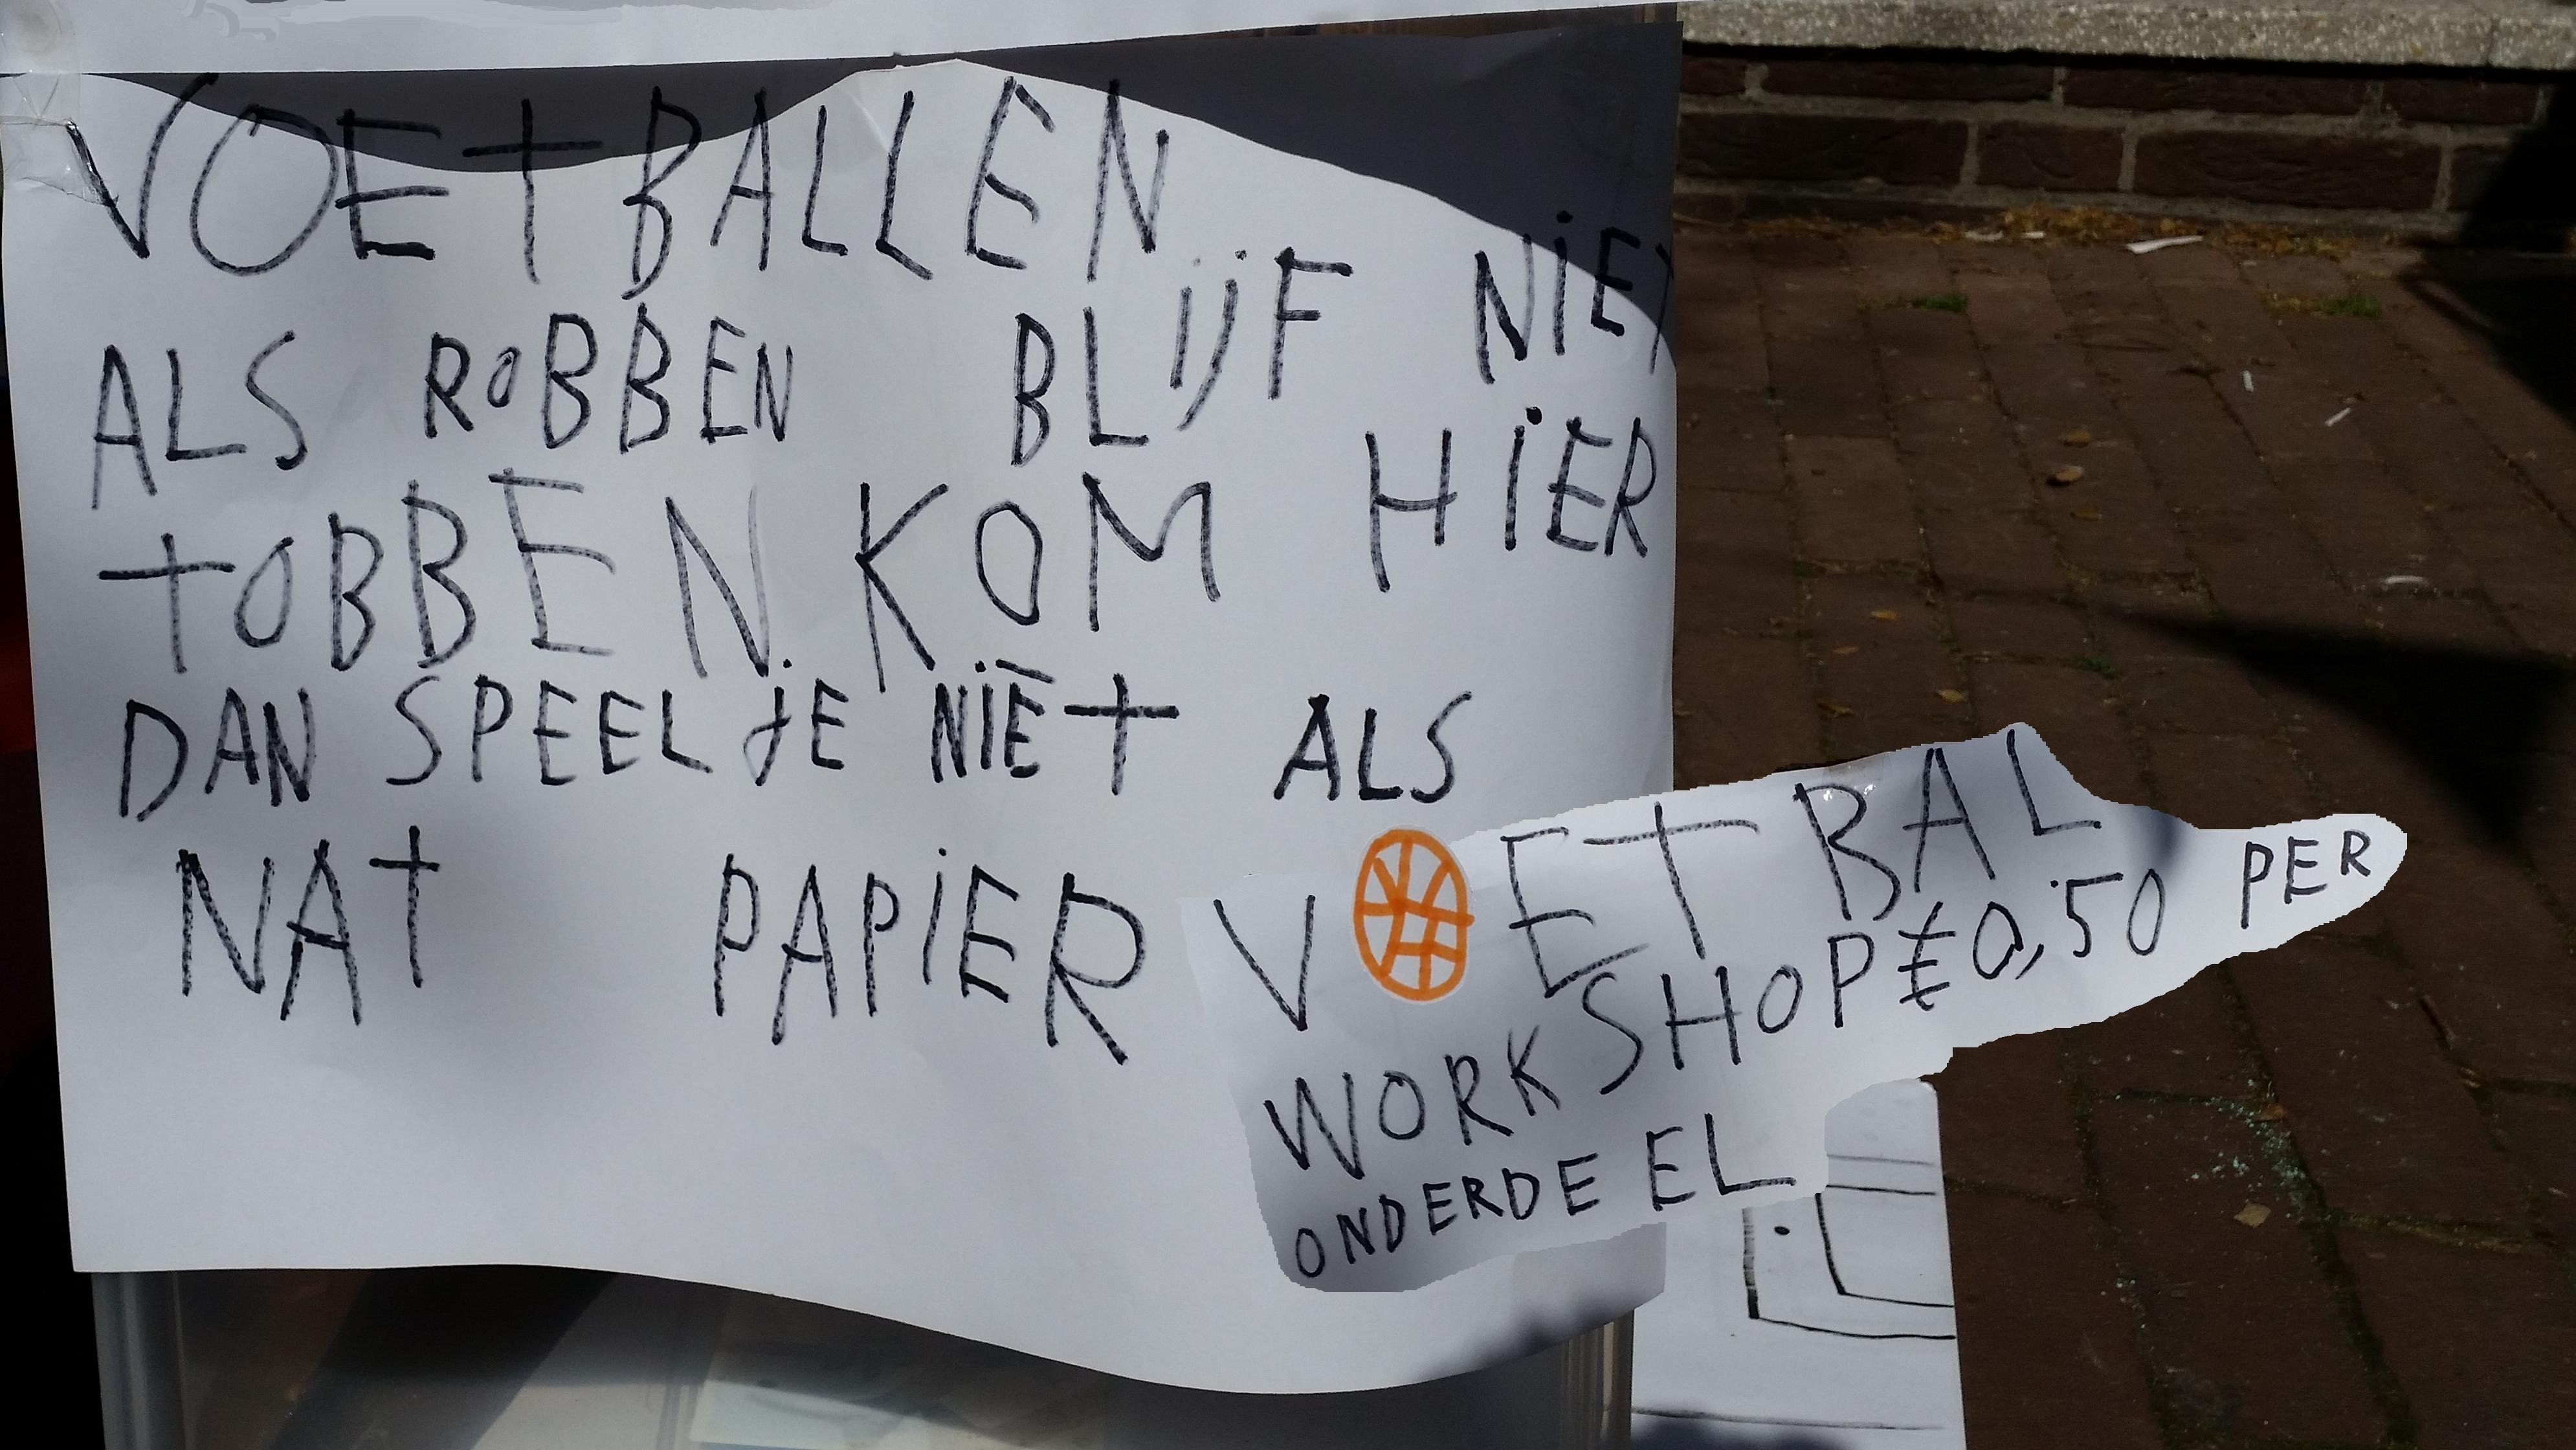 VOETBALLEN
ALS ROBBEN BLIJF NIET
TOBBEN. KOM HIER
DAN SPEEL JE NIET ALS
NAT PAPIER
VOETBAL
WORKSHOP €0,50 PER
ONDERDEEL